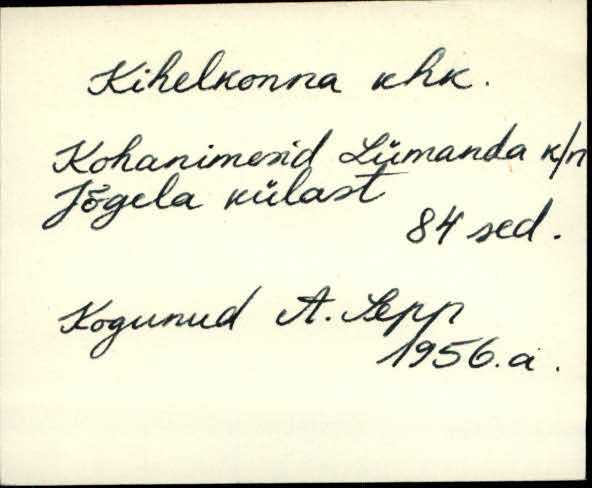 Kihelkonna khk.
Kohanimesid Lümanda k/n
Jõgela külast
84 sed.
Kogunud A. Sepp
1956.a.